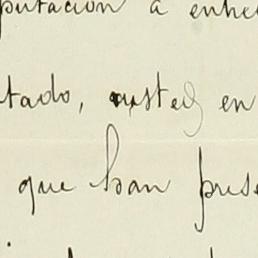 putacion á enhe
tado, usted en
que han prese